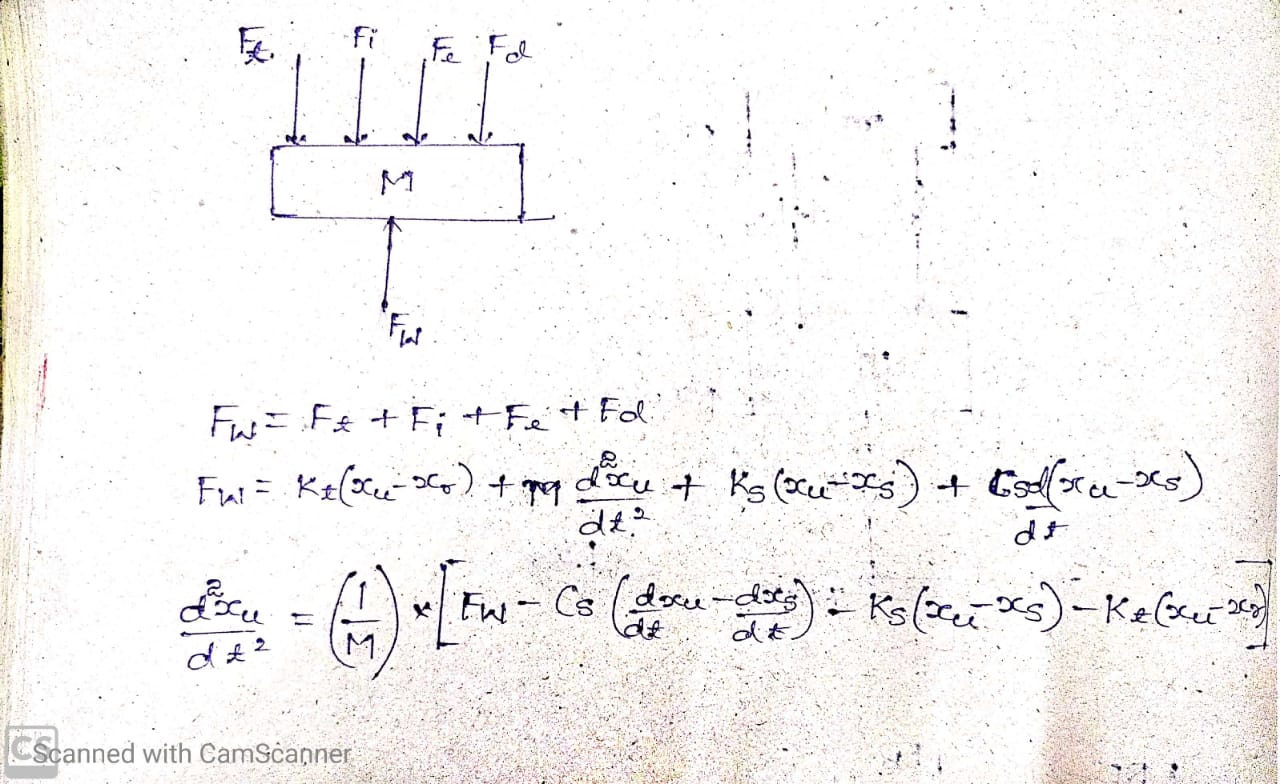 Ft Fi Fe Fd
M
Fw
Fw = Ft + Fi + Fe + Fd
Fw = Kt(xu - xr) + M d²xu/dt² + Ks(xu - xs) + Cs d(xu - xs)/dt
d²xu/dt² = (1/M) × [Fw - Cs (dxu/dt - dxs/dt) - Ks(xu - xs) - Kt(xu - xr)]
CS Scanned with CamScanner